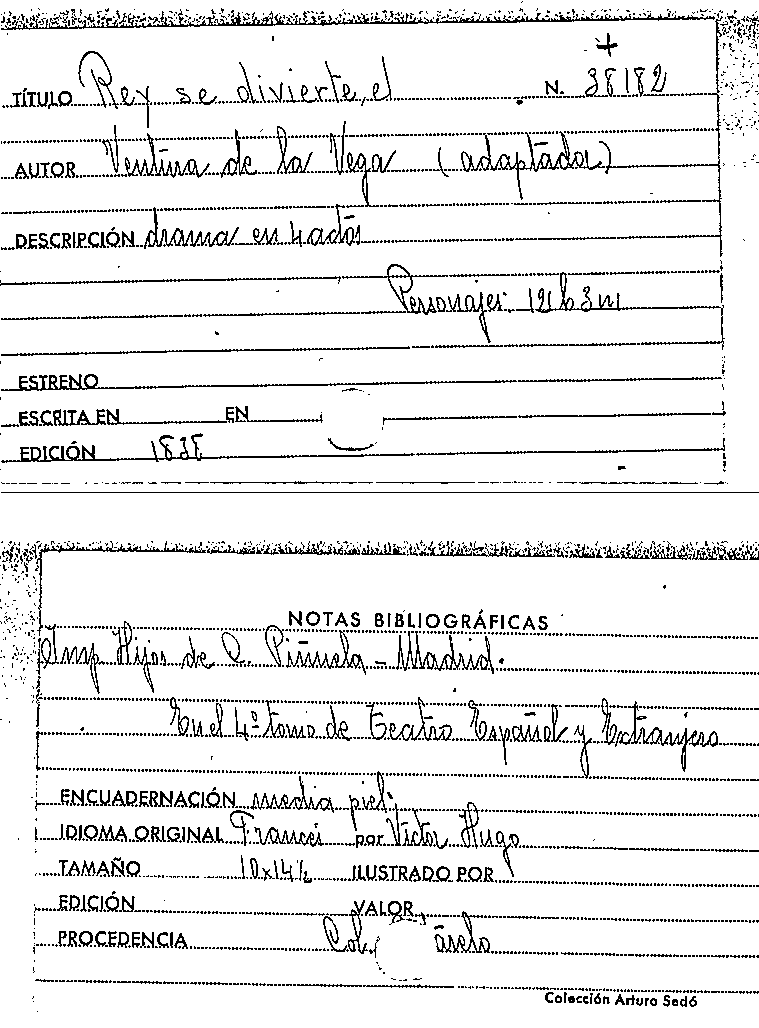 +
TÍTULO Rey se divierte, el N. 38182
AUTOR Ventura de la Vega (adaptador)
DESCRIPCIÓN drama en 4 actos
Personajes: 12 h 3 m
ESTRENO
ESCRITA EN EN
EDICIÓN
NOTAS BIBLIOGRÁFICAS
Imp Hijos de C. Piñuela - Madrid.
En el 4º tomo de Teatro Español y Extranjero
ENCUADERNACIÓN media piel
IDIOMA ORIGINAL Francés por Victor Hugo
TAMAÑO 10x14½ ILUSTRADO POR
EDICIÓN VALOR
PROCEDENCIA Col.
Colección Arturo Sedó